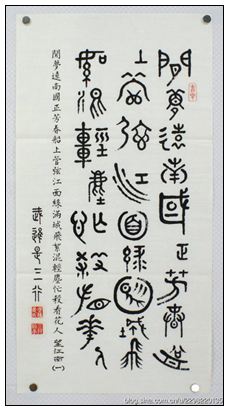 閒夢遠南國正芳春船
上管弦江面綠滿城飛
絮混輕塵忙殺看花人
閒夢遠南國正芳春船上管弦江面綠滿城飛絮混輕塵忙殺看花人 望江南(一)
blog.sina.com.cn/u/2298220135